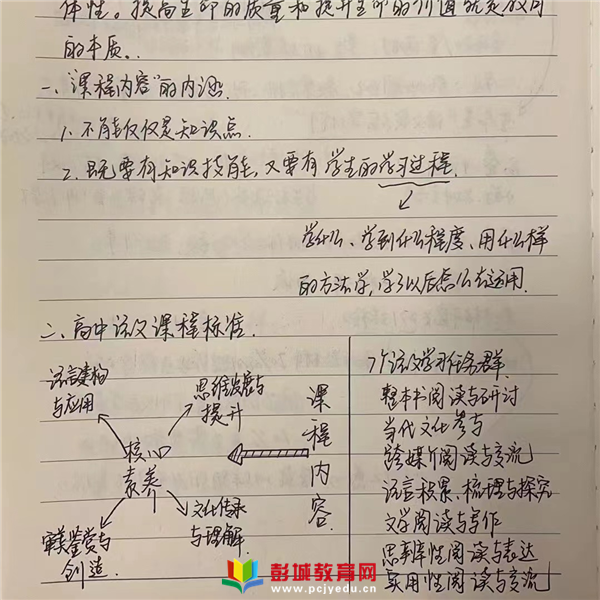 体性。提高生命的质量和提升生命的价值就是教育
的本质。
一、"课程内容"的内涵.
1. 不能仅仅是知识点.
2. 既要有知识技能，又要有学生的学习过程.
学什么、学到什么程度、用什么样
的方法学，学了以后怎么去运用.
二、高中语文课程标准.
语言建构
与应用
思维发展与
提升
核心
素养
审美鉴赏与
创造.
文化传承
与理解.
课程内容.
7个语文学习任务群
整本书阅读与研讨
当代文化参与
跨媒介阅读与交流
语言积累、梳理与探究
文学阅读与写作
思辨性阅读与表达
实用性阅读与交流
彭城教育网
www.pcjyedu.cn